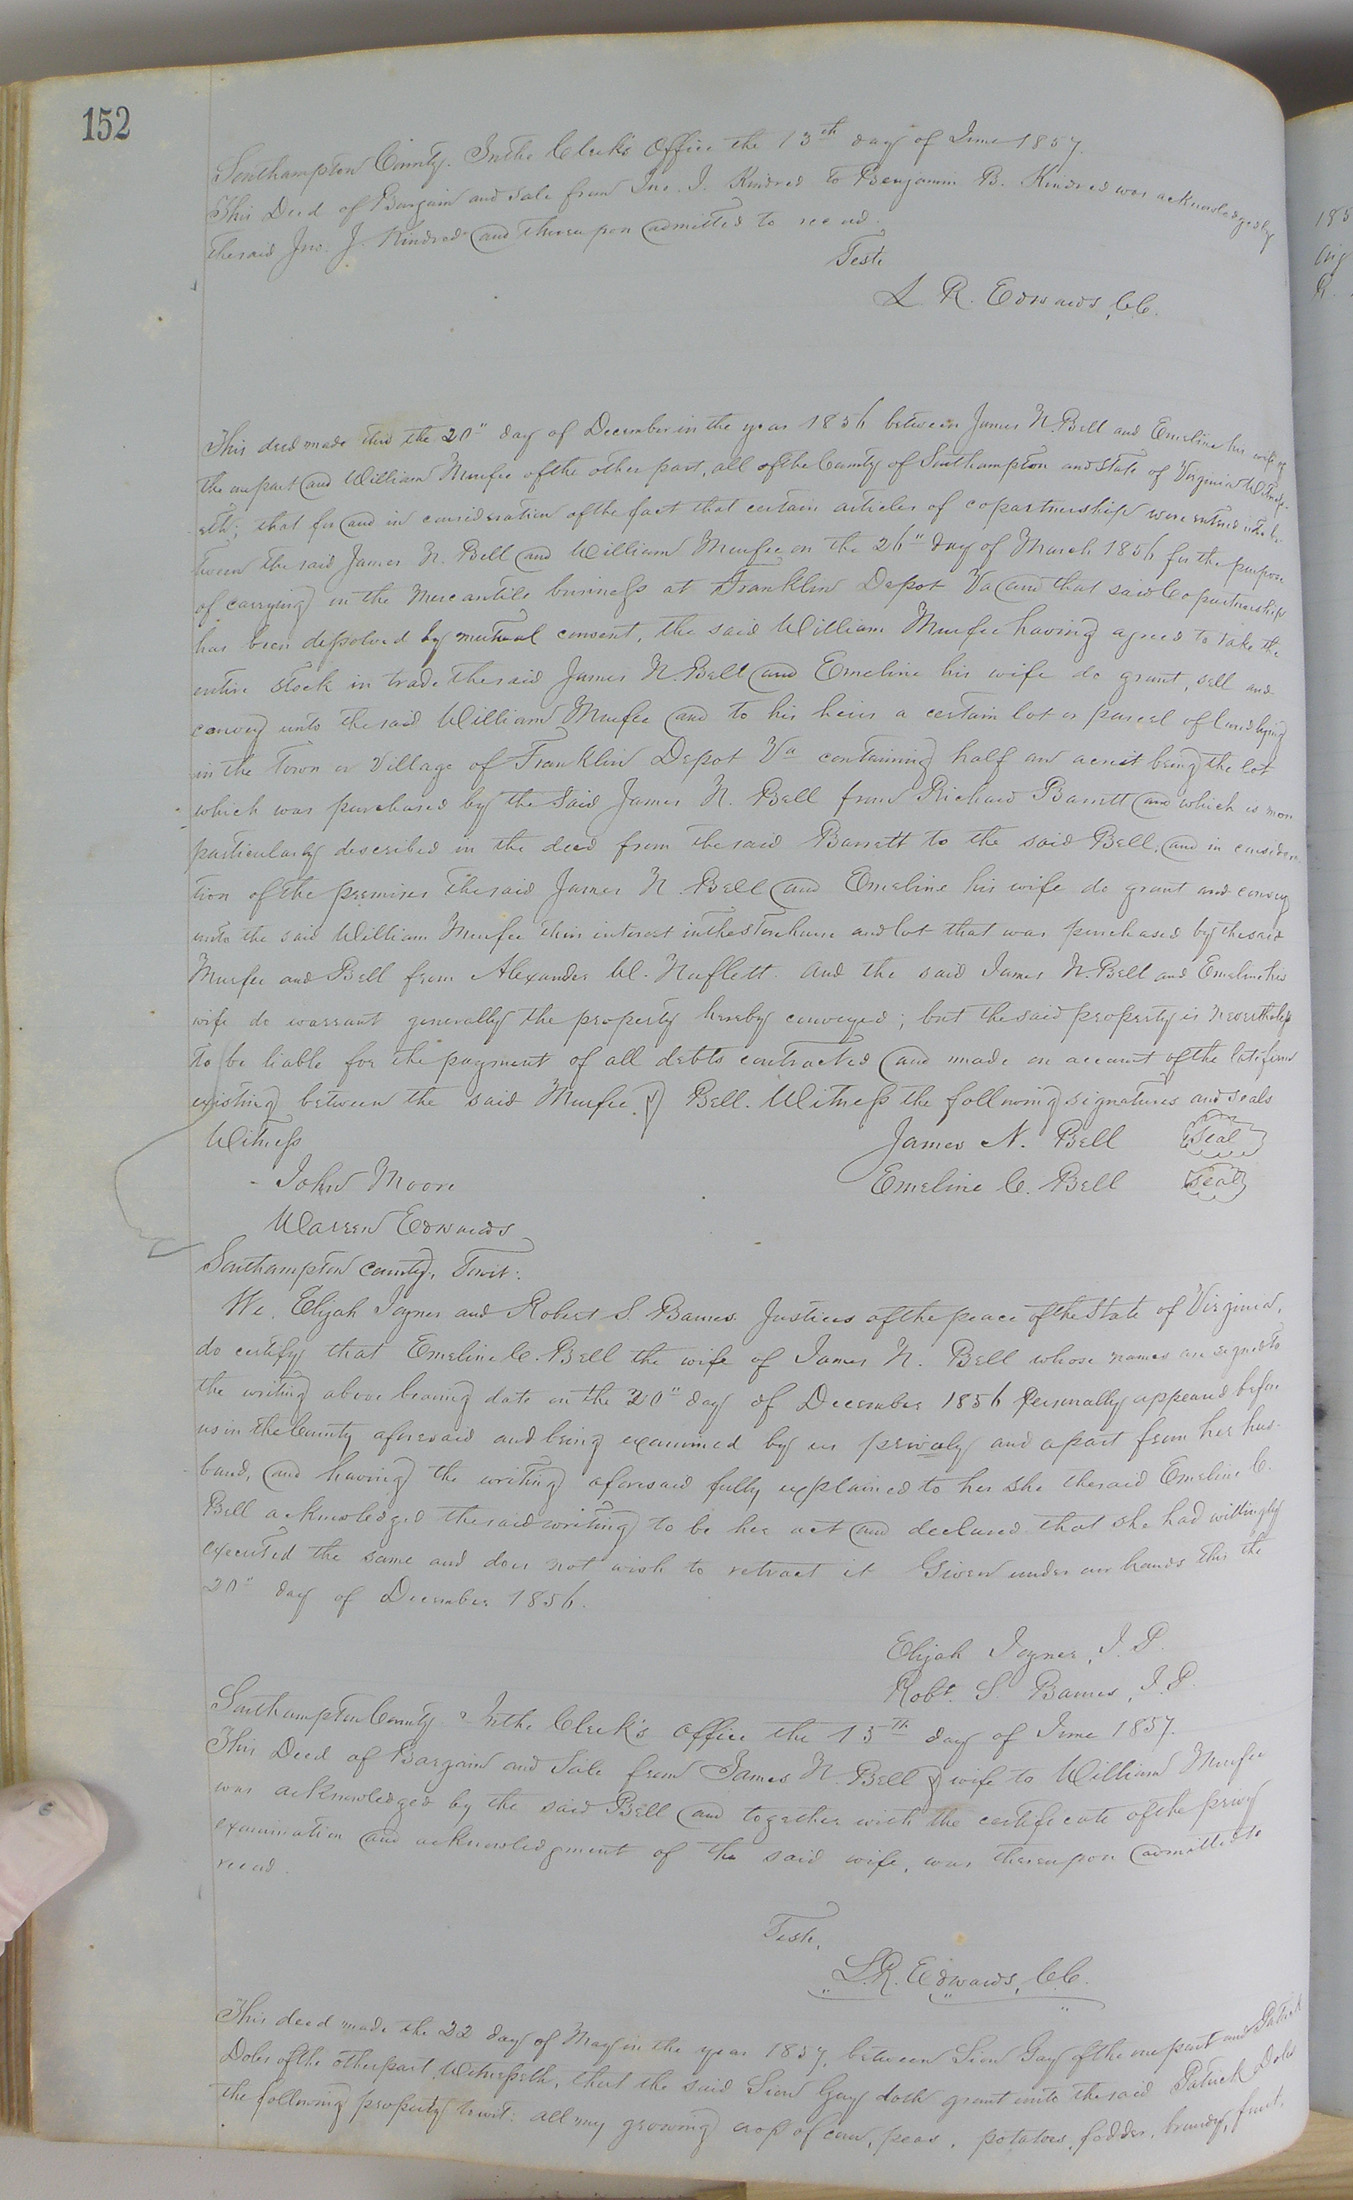 152
Southampton County. In the Clerk's Office the 15th day of June 1857.
This Deed of Bargain and sale from Jno. J. Kindred to Benjamin B. Kindred was acknowledged by
the said Jno. J. Kindred and thereupon admitted to record.
Teste
L R. Edwards, C.C.
This deed made this the 20" day of December in the year 1856 between James N. Bell and Emeline his wife of
the one part and William Murfee of the other part, all of the County of Southampton and State of Virginia Witness-
eth; that for and in consideration of the fact that certain articles of copartnership were entered into be-
tween the said James N. Bell and William Murfee on the 26" day of March 1856 for the purpose
of carrying on the Mercantile business at Franklin Depot Va and that said Copartnership
has been dissolved by mutual consent, the said William Murfee having agreed to take the
entire stock in trade the said James N. Bell and Emeline his wife do grant, sell and
convey unto the said William Murfee and to his heirs a certain lot or parcel of land lying
in the Town or Village of Franklin Depot Va containing half an acre it being the lot
which was purchased by the said James N. Bell from Richard Barrett and which is more
particularly described in the deed from the said Barrett to the said Bell, and in considera-
tion of the premises the said James N Bell and Emeline his wife do grant and convey
unto the said William Murfee their interest in the Storehouse and lot that was purchased by the said
Murfee and Bell from Alexander W. Norflett. And the said James N. Bell and Emeline his
wife do warrant generally the property hereby conveyed; but the said property is nevertheless
to be liable for the payment of all debts contracted and made on account of the late firm
existing between the said Murfee & Bell. Witness the following signatures and seals
Witness James N. Bell Seal
John Moore Emeline C. Bell Seal
Warren Edwards
Southampton County, Towit:
We, Elijah Joyner and Robert S. Barnes Justices of the peace of the State of Virginia,
do certify that Emeline C. Bell the wife of James N. Bell whose names are signed to
the writing above bearing date on the 20" day of December 1856 personally appeared before
us in the County aforesaid and being examined by us privaly and apart from her hus-
band, and having the writing aforesaid fully explained to her she the said Emeline C.
Bell acknowledged the said writing to be her act and declared that she had willingly
executed the same and does not wish to retract it Given under our hands this the
20" day of December 1856.
Elijah Joyner, J. P.
Robt. S. Barnes, J. P.
Southampton County. In the Clerk's office the 15th day of June 1857.
This Deed of Bargain and Sale from James N. Bell & wife to William Murfee
was acknowledged by the said Bell and together with the certificate of the privy
examination and acknowledgment of the said wife, was thereupon admitted to
record.
Teste,
L.R. Edwards, C.C.
This deed made the 22 day of May in the year 1857, between Sion Gay of the one part and Patrick
Doles of the other part, Witnesseth, that the said Sion Gay doth grant unto the said Patrick Doles
the following property towit: all my growing crop of corn, peas, potatoes, fodder, brandy, fruit,